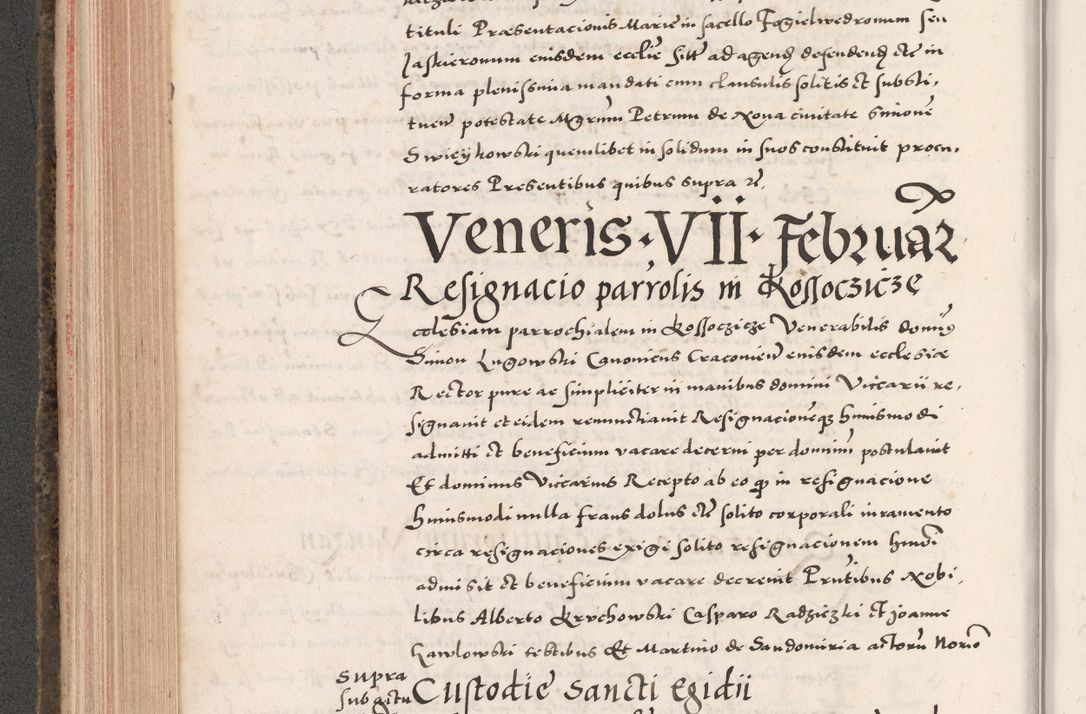 tituli Praesentacionis Marie in sacello Fogielwedronum seu
Jaskieronum eiusdem ecclie sitt ad agend defendend etc in
forma plenissima mandati cum clausulis solitis et substi,
tuen potestate Mgrum Petrum de Nova civitate Simone
Swieykowski quemlibet in solidum in suos constituit procu,
ratores Presentibus quibus supra etc,
Veneris · VII · Februar
Resignacio parrolis in Kossoczicze
Ecclesiam parrochialem in Kossoczicze Venerabilis domn9
Simon Lugowski Canonicus Cracovien eiusdem ecclesie
Rector pure ac simpliciter in manibus domini Vicearii re,
signavit et eidem renunctiavit Resignacioneqz huiusmodi
admitti et beneficium vacare decerni per dominum postulavit
Et dominus Vicearius Recepto ab eo qp in resignacione
huiusmodi nulla fraus dolus etc solito corporali iuramento
circa resignaciones exigi solito resignacionem hmoi
admisit et beneficium vacare decrevit Prntibus Nobi,
libus Alberto Krychowski Casparo Radziczki et Joanne
Hawlowski testibus Et Martino de Sandomiria actoru Norio
Supra
sub actu Custodie Sancti Egidii